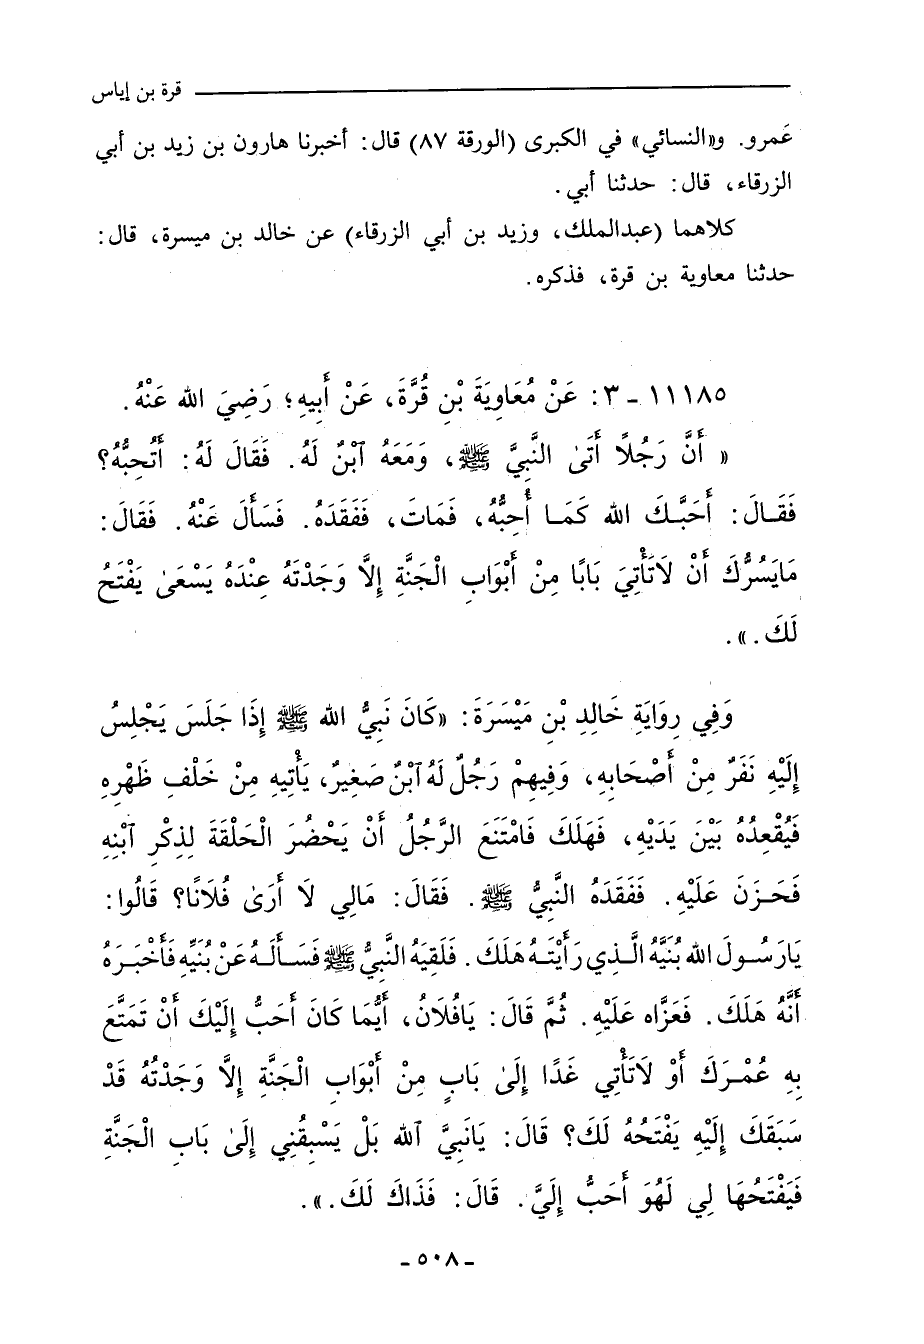 قرة بن إياس
عَمرو. و«النسائي» في الكبرى (الورقة ٨٧) قال: أخبرنا هارون بن زيد بن أبي
الزرقاء، قال: حدثنا أبي.
كلاهما (عبدالملك، وزيد بن أبي الزرقاء) عن خالد بن ميسرة، قال:
حدثنا معاوية بن قرة، فذكره.
١١١٨٥ - ٣: عَنْ مُعَاوِيَةَ بْنِ قُرَّةَ، عَنْ أَبِيهِ؛ رَضِيَ الله عَنْهُ.
« أَنَّ رَجُلًا أَتَىٰ النَّبِيَّ ﷺ، وَمَعَهُ ٱبْنٌ لَهُ. فَقَالَ لَهُ: أَتُحِبُّهُ؟
فَقَالَ: أَحَبَّكَ الله كَمَا أُحِبُّهُ، فَمَاتَ، فَفَقَدَهُ. فَسَأَلَ عَنْهُ. فَقَالَ:
مَايَسُرُّكَ أَنْ لَاتَأْتِيَ بَابًا مِنْ أَبْوَابِ الْجَنَّةِ إِلَّا وَجَدْتَهُ عِنْدَهُ يَسْعَىٰ يَفْتَحُ
لَكَ.».
وَفِي رِوَايَةِ خَالِدِ بْنِ مَيْسَرَةَ: «كَانَ نَبِيُّ الله ﷺ إِذَا جَلَسَ يَجْلِسُ
إِلَيْهِ نَفَرٌ مِنْ أَصْحَابِهِ، وَفِيهِمْ رَجُلٌ لَهُ ٱبْنٌ صَغِيرٌ، يَأْتِيهِ مِنْ خَلْفِ ظَهْرِهِ
فَيُقْعِدُهُ بَيْنَ يَدَيْهِ، فَهَلَكَ فَامْتَنَعَ الرَّجُلُ أَنْ يَحْضُرَ الْحَلْقَةَ لِذِكْرِ ٱبْنِهِ
فَحَزِنَ عَلَيْهِ. فَفَقَدَهُ النَّبِيُّ ﷺ. فَقَالَ: مَالِي لَا أَرَىٰ فُلَانًا؟ قَالُوا:
يَارَسُولَ الله بُنَيَّهُ الَّذِي رَأَيْتَهُ هَلَكَ. فَلَقِيَهُ النَّبِيُّ ﷺ فَسَأَلَهُ عَنْ بُنَيِّهِ فَأَخْبَرَهُ
أَنَّهُ هَلَكَ. فَعَزَّاه عَلَيْهِ. ثُمَّ قَالَ: يَافُلَانُ، أَيُّمَا كَانَ أَحَبُّ إِلَيْكَ أَنْ تَمَتَّعَ
بِهِ عُمْرَكَ أَوْ لَاتَأْتِي غَدًا إِلَىٰ بَابٍ مِنْ أَبْوَابِ الْجَنَّةِ إِلَّا وَجَدْتُهُ قَدْ
سَبَقَكَ إِلَيْهِ يَفْتَحُهُ لَكَ؟ قَالَ: يَانَبِيَّ ٱلله بَلْ يَسْبِقُنِي إِلَىٰ بَابِ الْجَنَّةِ
فَيَفْتَحُهَا لِي لَهُوَ أَحَبُّ إِلَيَّ. قَالَ: فَذَاكَ لَكَ.».
- ٥٠٨ -